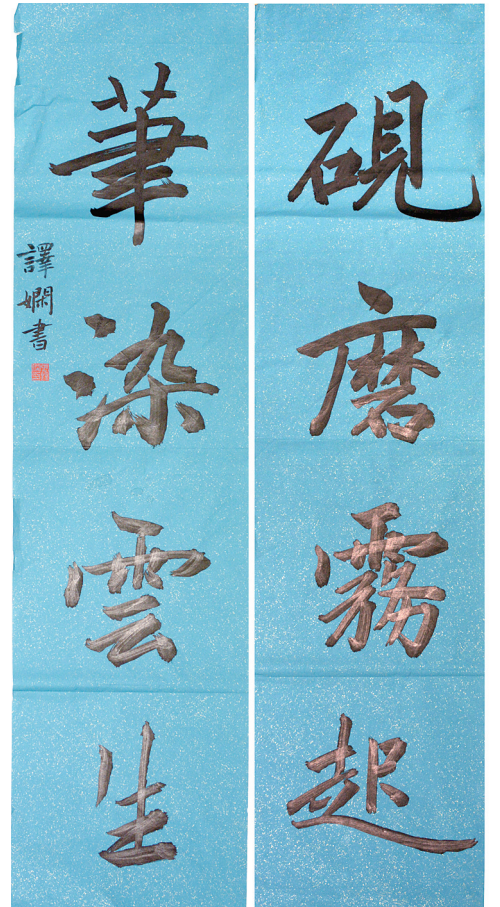 硯磨霧起
筆染雲生
譯嫻書